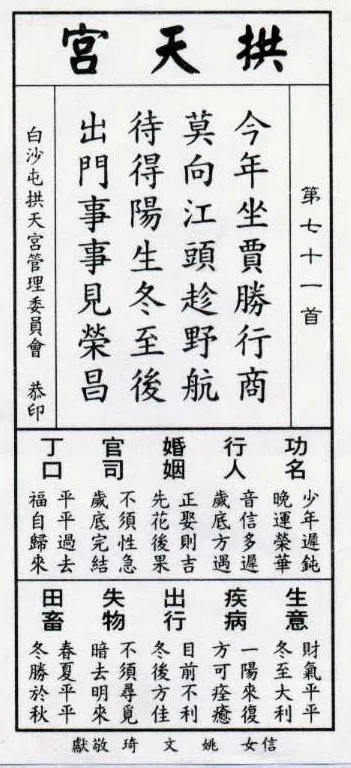 拱天宮
第七十一首
今年坐賈勝行商
莫向江頭趁野航
待得陽生冬至後
出門事事見榮昌
白沙屯拱天宮管理委員會 恭印
功名
少年遲鈍
晚運榮華
行人
音信多遲
歲底方遇
婚姻
正娶則吉
先花後果
官司
不須性急
歲底完結
丁口
平平過去
福自歸來
生意
財氣平平
冬至大利
疾病
一陽來復
方可痊癒
出行
目前不利
冬後方佳
失物
不須尋覓
暗去明來
田畜
春夏平平
冬勝於秋
信女姚文琦敬獻